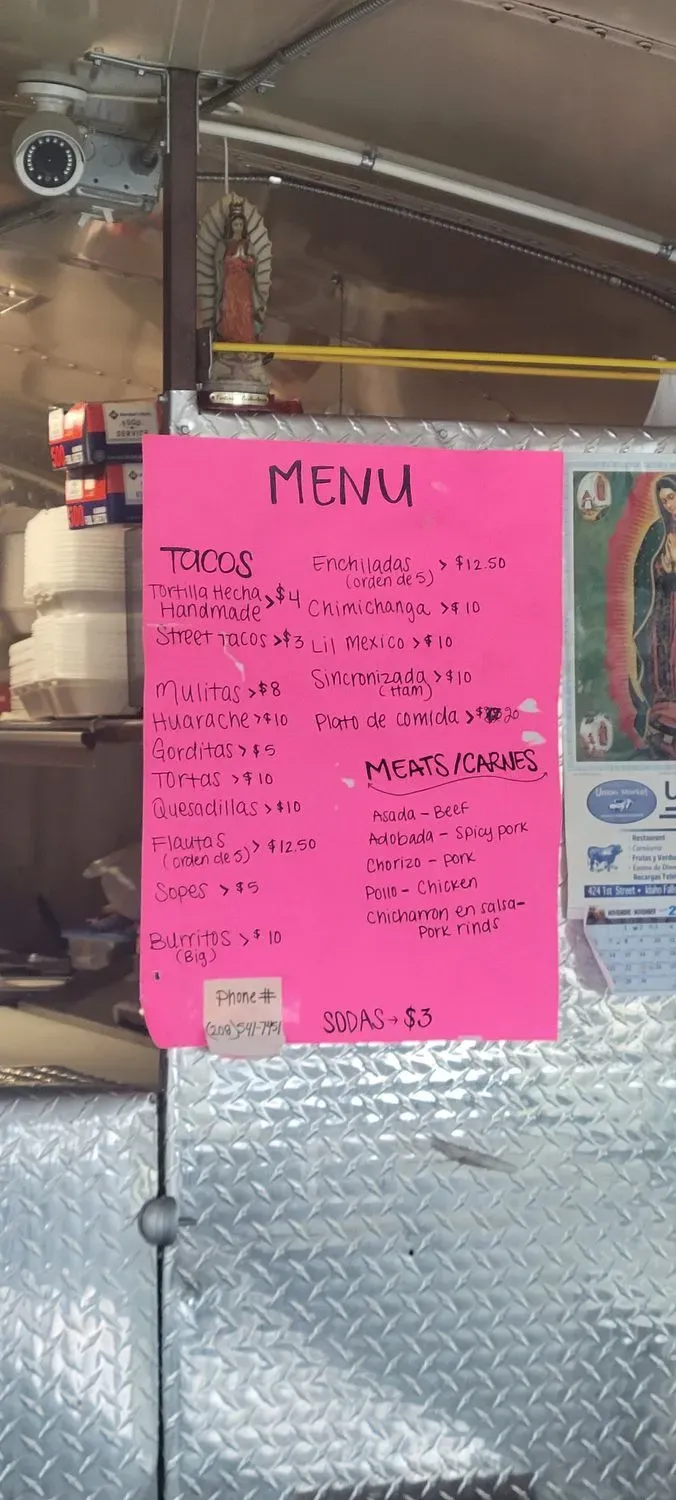 MENU
TACOS
Tortilla Hecha
Handmade > $4
Street Tacos > $3
Mulitas > $8
Huarache > $10
Gorditas > $5
Tortas > $10
Quesadillas > $10
Flautas > $12.50
(orden de 5)
Sopes > $5
Burritos > $10
(Big)
Enchiladas > $12.50
(orden de 5)
Chimichanga > $10
Lil Mexico > $10
Sincronizada > $10
(Ham)
Plato de comida > $20
MEATS/CARNES
Asada - Beef
Adobada - Spicy pork
Chorizo - pork
Pollo - Chicken
Chicharron en salsa -
Pork rinds
SODAS → $3
Phone #
(208)541-7451
500
500
Union Market
Restaurant
Carniceria
424 1st Street • Idaho
NOVIEMBRE NOVEMBER